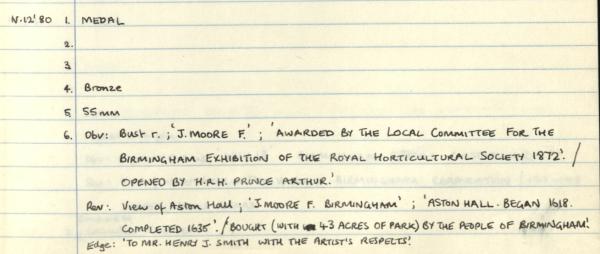 N.12'80 1. MEDAL
2.
3
4. Bronze
5. 55mm
6. Obv: Bust r. ; 'J. MOORE F.' ; 'AWARDED BY THE LOCAL COMMITTEE FOR THE
BIRMINGHAM EXHIBITION OF THE ROYAL HORTICULTURAL SOCIETY 1872'. /
OPENED BY H.R.H. PRINCE ARTHUR.'
Rev: View of Aston Hall ; 'J. MOORE F. BIRMINGHAM' ; 'ASTON HALL. BEGAN 1618.
COMPLETED 1635'. / BOUGRT (WITH 43 ACRES OF PARK) BY THE PEOPLE OF BIRMINGHAM'.
Edge: 'TO MR. HENRY J. SMITH WITH THE ARTIST'S RESPECTS'.